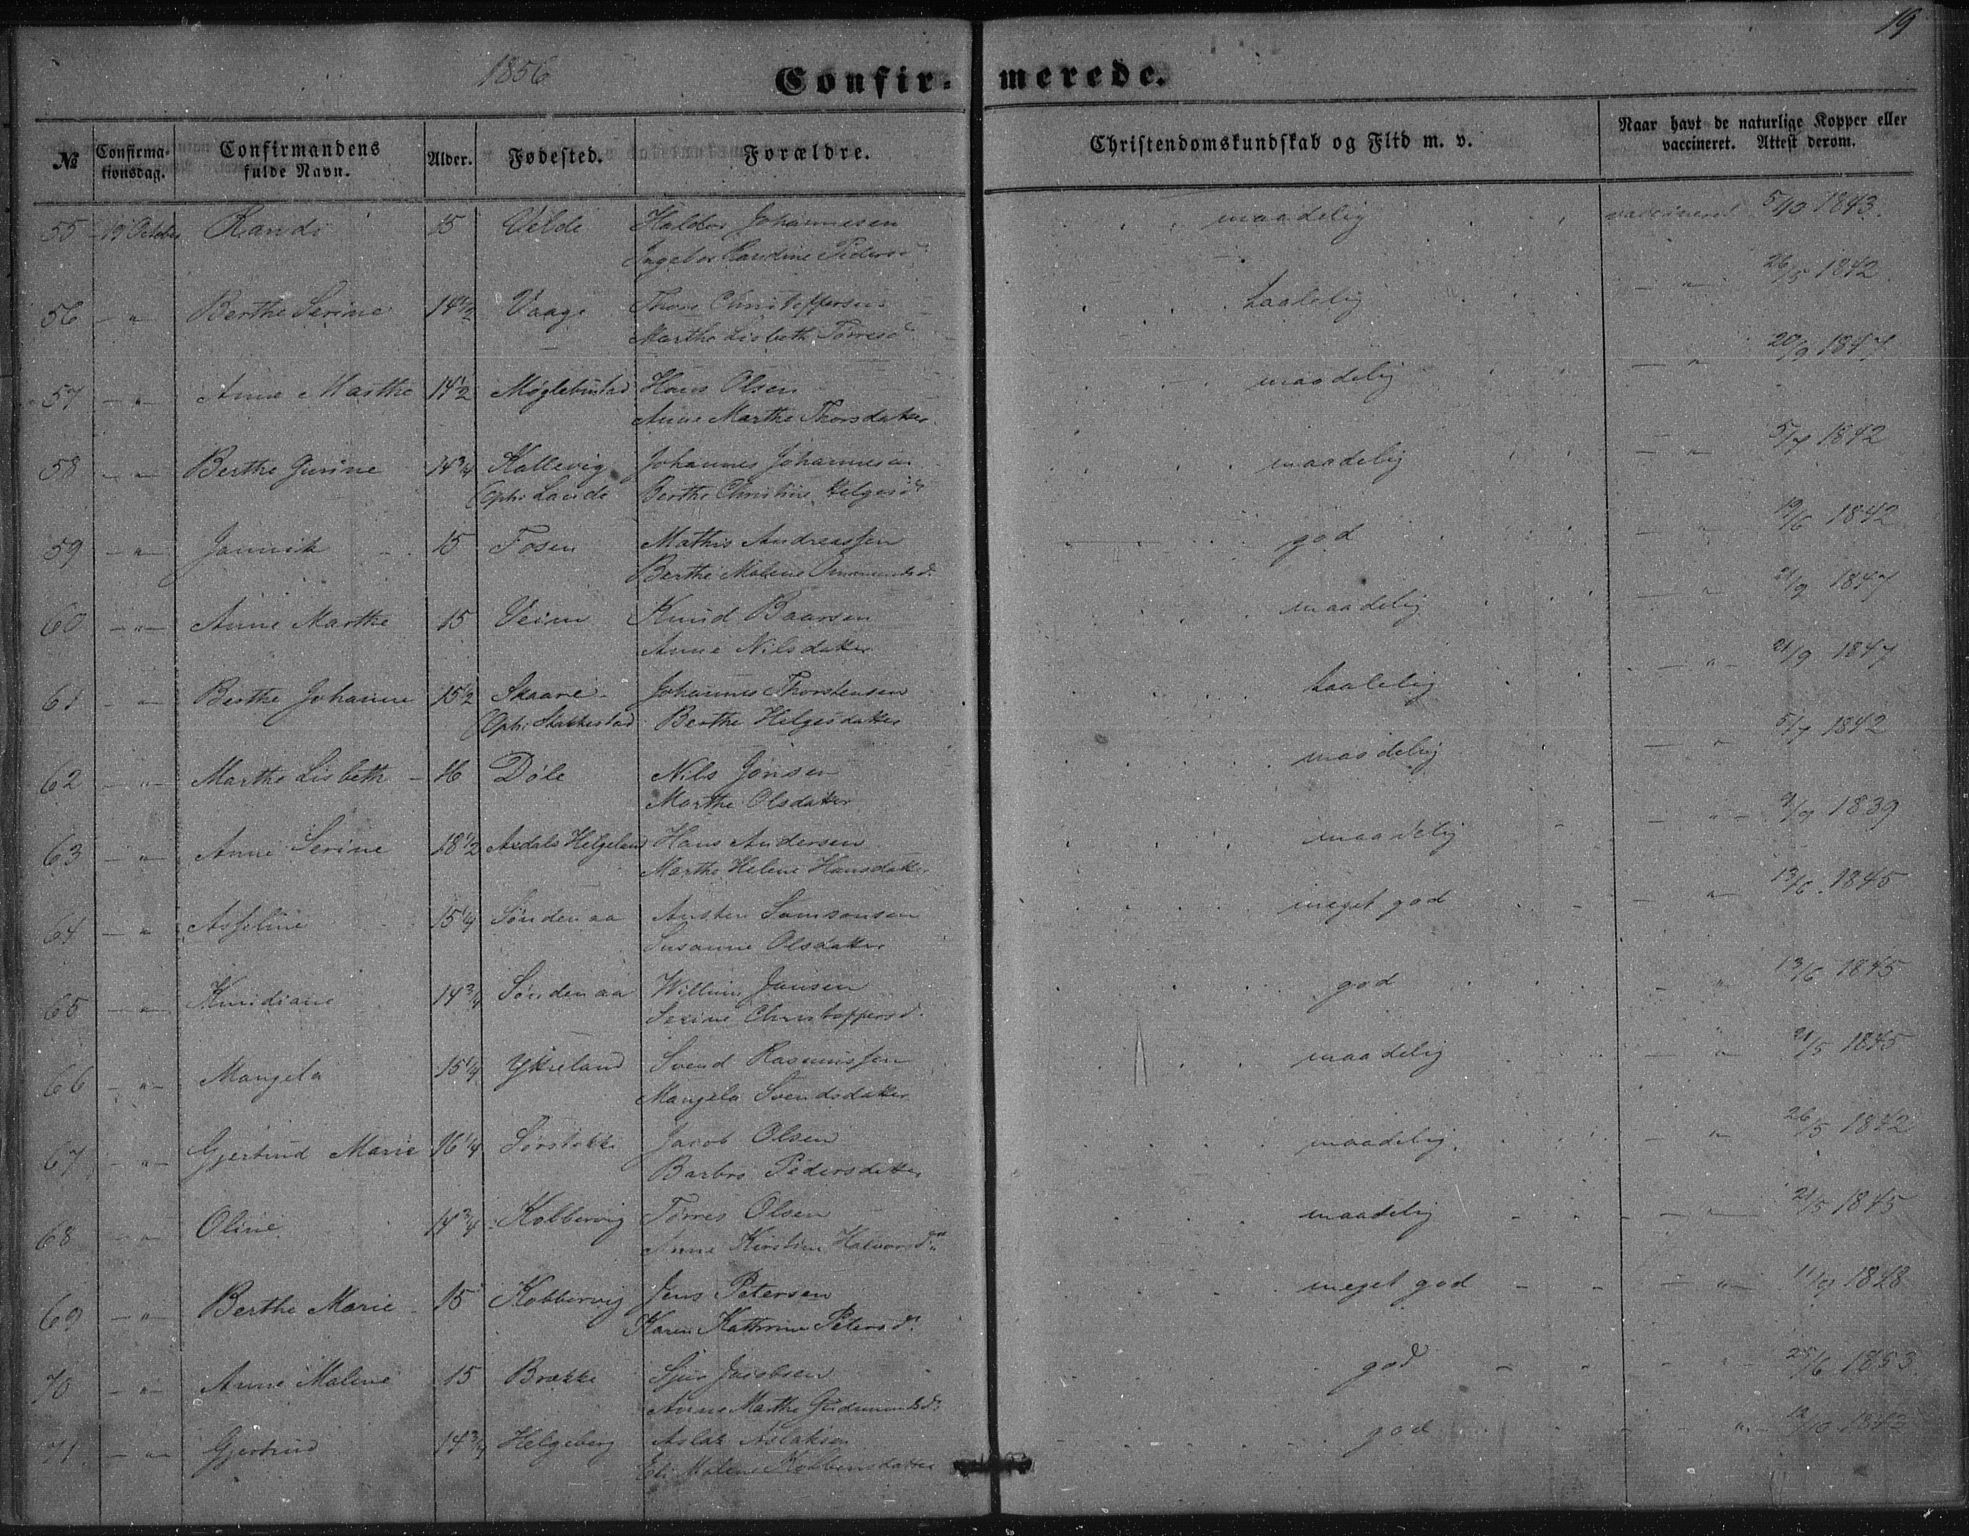 19
1856
Confir- merede.
№ Confirmationsdag. Confirmandens fulde Navn. Alder. Fødested. Forældre. Christendomskundskab og Flid m. v. Naar havt de naturlige Kopper eller vaccineret. Attest derom.
55 19 October Randi 15 Velde Haldor Johannesen maadelig vaccineret 5/10 1843.
Ingebor Pedersd
56 - " - Berthe Serine 14 1/2 Vaage Thore Christoffersen taalelig - " - 26/5 1842
Marthe Lisbeth Torresd
57 - " - Anne Marthe 14 1/2 Møglebustad Hans Olsen maadelig - " - 20/9 1847
Anne Marthe Thorsdatter.
58 - " - Berthe Gurine 14 3/4 Kallevig Johannes Johannesen maadelig - " - 5/7 1842
Oph: Lande Berthe Christine Helgesd
59 - " - Jannik 15 Fosen Mathis Andreassen god " 19/6 1842
Berthe Malene Ommundsd.
60 - " - Anne Marthe 15 Veim Knud Baarsen maadelig - " - 21/9 1847
Anne Nilsdatter
61 - " - Berthe Johanne 15 1/2 Skaare Johannes Thorstensen taalelig - " - 21/9 1847
Oph: Stakkestad Berthe Helgesdatter
62 - " - Marthe Lisbeth 16 Døle Nils Jonsen maadelig - " - 5/7 1842
Marthe Olsdatter
63 - " - Anne Serine 18 1/2 Helgeland Hans Andersen maadelig - " - 1839
Marthe Helene Hansdatter
64 - " - Asseline 15 1/4 Søndenaa Austen Samsonsen meget god - " - 13/6 1845
Susanne Olsdatter
65 - " - Knudiane 14 3/4 Søndenaa William Jansen god " 13/6 1845
Serine Christoffersd.
66 - " - Mangela 15 1/4 Ykreland Svend Rasmussen maadelig - " 21/5 1845
Mangela Svendsdatter
67 - " - Gjertrud Marie 16 1/4 Sørstokke Jacob Olsen maadelig. - " - 26/5 1842
Barbro Pedersdatter
68 - " - Oline 14 3/4 Kobbervig Torres Olsen maadelig - " - 21/5 1845
Anne Kirstine Halvorsd
69 - " - Berthe Marie 15 Kobbervig Jens Petersen meget god - " - 11/9 1848
Karen Kathrine Petersd.
70 - " - Anne Malene 15 Brække Sjur Jacobsen god - " - 25/6 1853.
Anne Marthe Gudmundsd.
71 - " - Gjertrud 14 3/4 Helgeberg Aslak Aslaksen god - " - 12/10 1842
Eli Malene